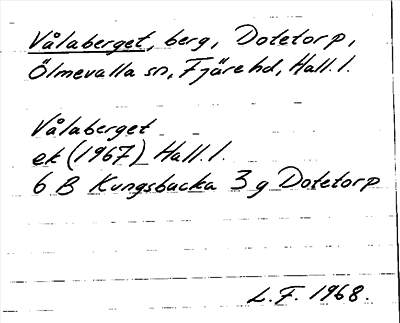 Vålaberget, berg, Dotetorp,
Ölmevalla sn, Fjäre hd, Hall. l.
Vålaberget
ek (1967) Hall. l.
6 B Kungsbacka 3 g Dotetorp
L. F. 1968.